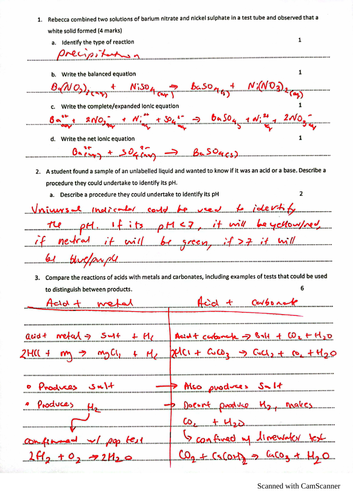 1. Rebecca combined two solutions of barium nitrate and nickel sulphate in a test tube and observed that a
white solid formed (4 marks)
a. Identify the type of reaction 1
precipitation
b. Write the balanced equation 1
Ba(NO3)2(aq) + NiSO4(aq) → BaSO4(s) + Ni(NO3)2(aq)
c. Write the complete/expanded ionic equation 1
Ba2+aq + 2NO3-aq + Ni2+aq + SO42-aq → BaSO4s + Ni2+aq + 2NO3-aq
d. Write the net ionic equation 1
Ba2+(aq) + SO42-(aq) → BaSO4(s)
2. A student found a sample of an unlabelled liquid and wanted to know if it was an acid or a base. Describe a
procedure they could undertake to identify its pH.
a. Describe a procedure they could undertake to identify its pH 2
Universal indicator could be used to identify
the pH. If its pH <7, it will be yellow/red,
if neutral it will be green, if >7 it will
be blue/purple
3. Compare the reactions of acids with metals and carbonates, including examples of tests that could be used
to distinguish between products. 6
Acid + metal Acid + Carbonate
acid + metal → Salt + H2 Acid + carbonate → Salt + CO2 + H2O
2HCl + Mg → MgCl2 + H2 2HCl + CaCO3 → CaCl2 + CO2 + H2O
• Produces Salt → Also produces Salt
• Produces H2 → Doesnt produce H2, makes
CO2 + H2O
confirmed w/ pop test ↳ confirmed w/ limewater test
2H2 + O2 → 2H2O CO2 + Ca(OH)2 → CaCO3 + H2O
Scanned with CamScanner